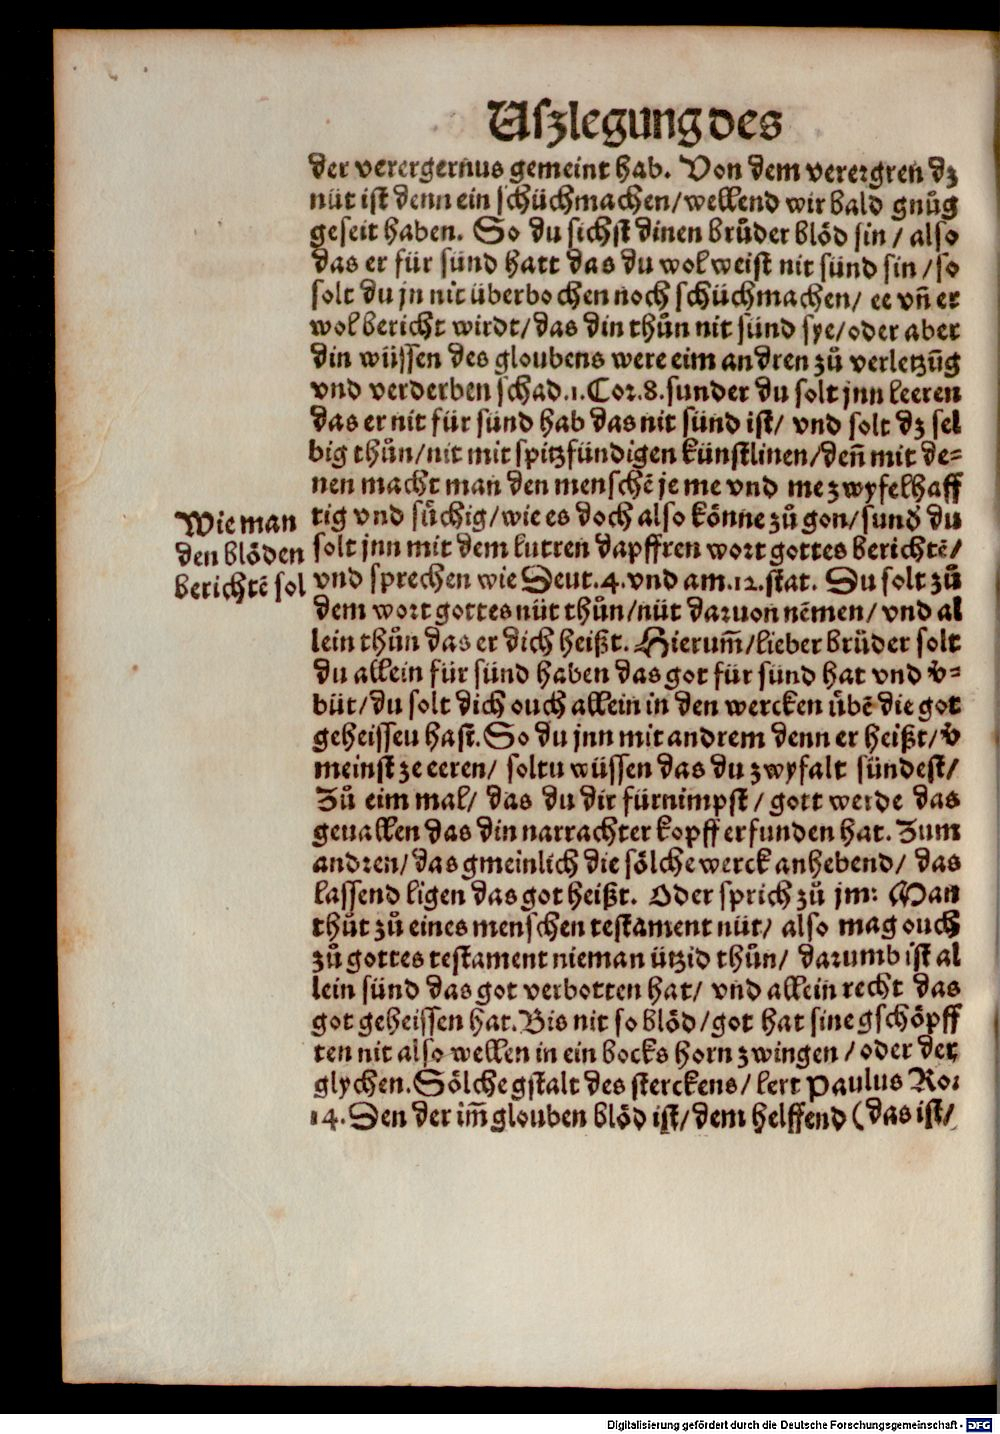 Uſzlegung des
der verergernus gemeint hab. Von dem verergren dʒ
nüt ist denn ein schüchmachen/wellend wir bald gnůg
geseit haben. So du sichst dinen brůder blöd sin / also
das er für sünd hatt das du wol weist nit sünd sin /so
solt du jn nit überbochen noch schüchmachen/ ee vñ er
wol bericht wirdt/das din thůn nit sünd sye/oder aber
din wüssen des gloubens were eim andren zů verletzūg
vnd verderben schad.1.Cor.8.sunder du solt jnn leeren
das er nit für sünd hab das nit sünd ist/ vnd solt dʒ sel
big thůn/nit mit spitzfündigen künstlinen/deñ mit de⸗
nen macht man den menschē je me vnd me zwyfelhaff
tig vnd süchig/wie es doch also könne zů gon/sund̕ du
solt jnn mit dem lutren dapffren wort gottes berichtē/
vnd sprechen wie Deut.4.vnd am.12.stat. Du solt zů
dem wort gottes nüt thůn/nüt daruon nēmen/ vnd al
lein thůn das er dich heißt. Hierum̄/lieber brüder solt
du allein für sünd haben das got für sünd hat vnd v̕⸗
büt/du solt dich ouch allein in den wercken übē die got
geheissen hast. So du jnn mit andrem denn er heißt/v̕
meinst ze eeren/ soltu wüssen das du zwyfalt sündest/
Zů eim mal/ das du dir fürnimpst/ gott werde das
geuallen das din narrachter kopff erfunden hat. Zum
andren/das gmeinlich die sölche werck anhebend/ das
lassend ligen das got heißt. Oder sprich zů jm: Man
thůt zů eines menschen testament nüt/ also mag ouch
zů gottes testament nieman ützid thůn/ darumb ist al
lein sünd das got verbotten hat/ vnd allein recht das
got geheissen hat. Bis nit so blöd/got hat sine gschöpff
ten nit also wellen in ein bocks horn zwingen /oder der
glychen. Sölche gstalt des sterckens/ lert Paulus Ro:
14. Den der im̄ glouben blöd ist/dem helffend (das ist/
Wie man
den blöden
berichtē sol
Digitalisierung gefördert durch die Deutsche Forschungsgemeinschaft - DFG